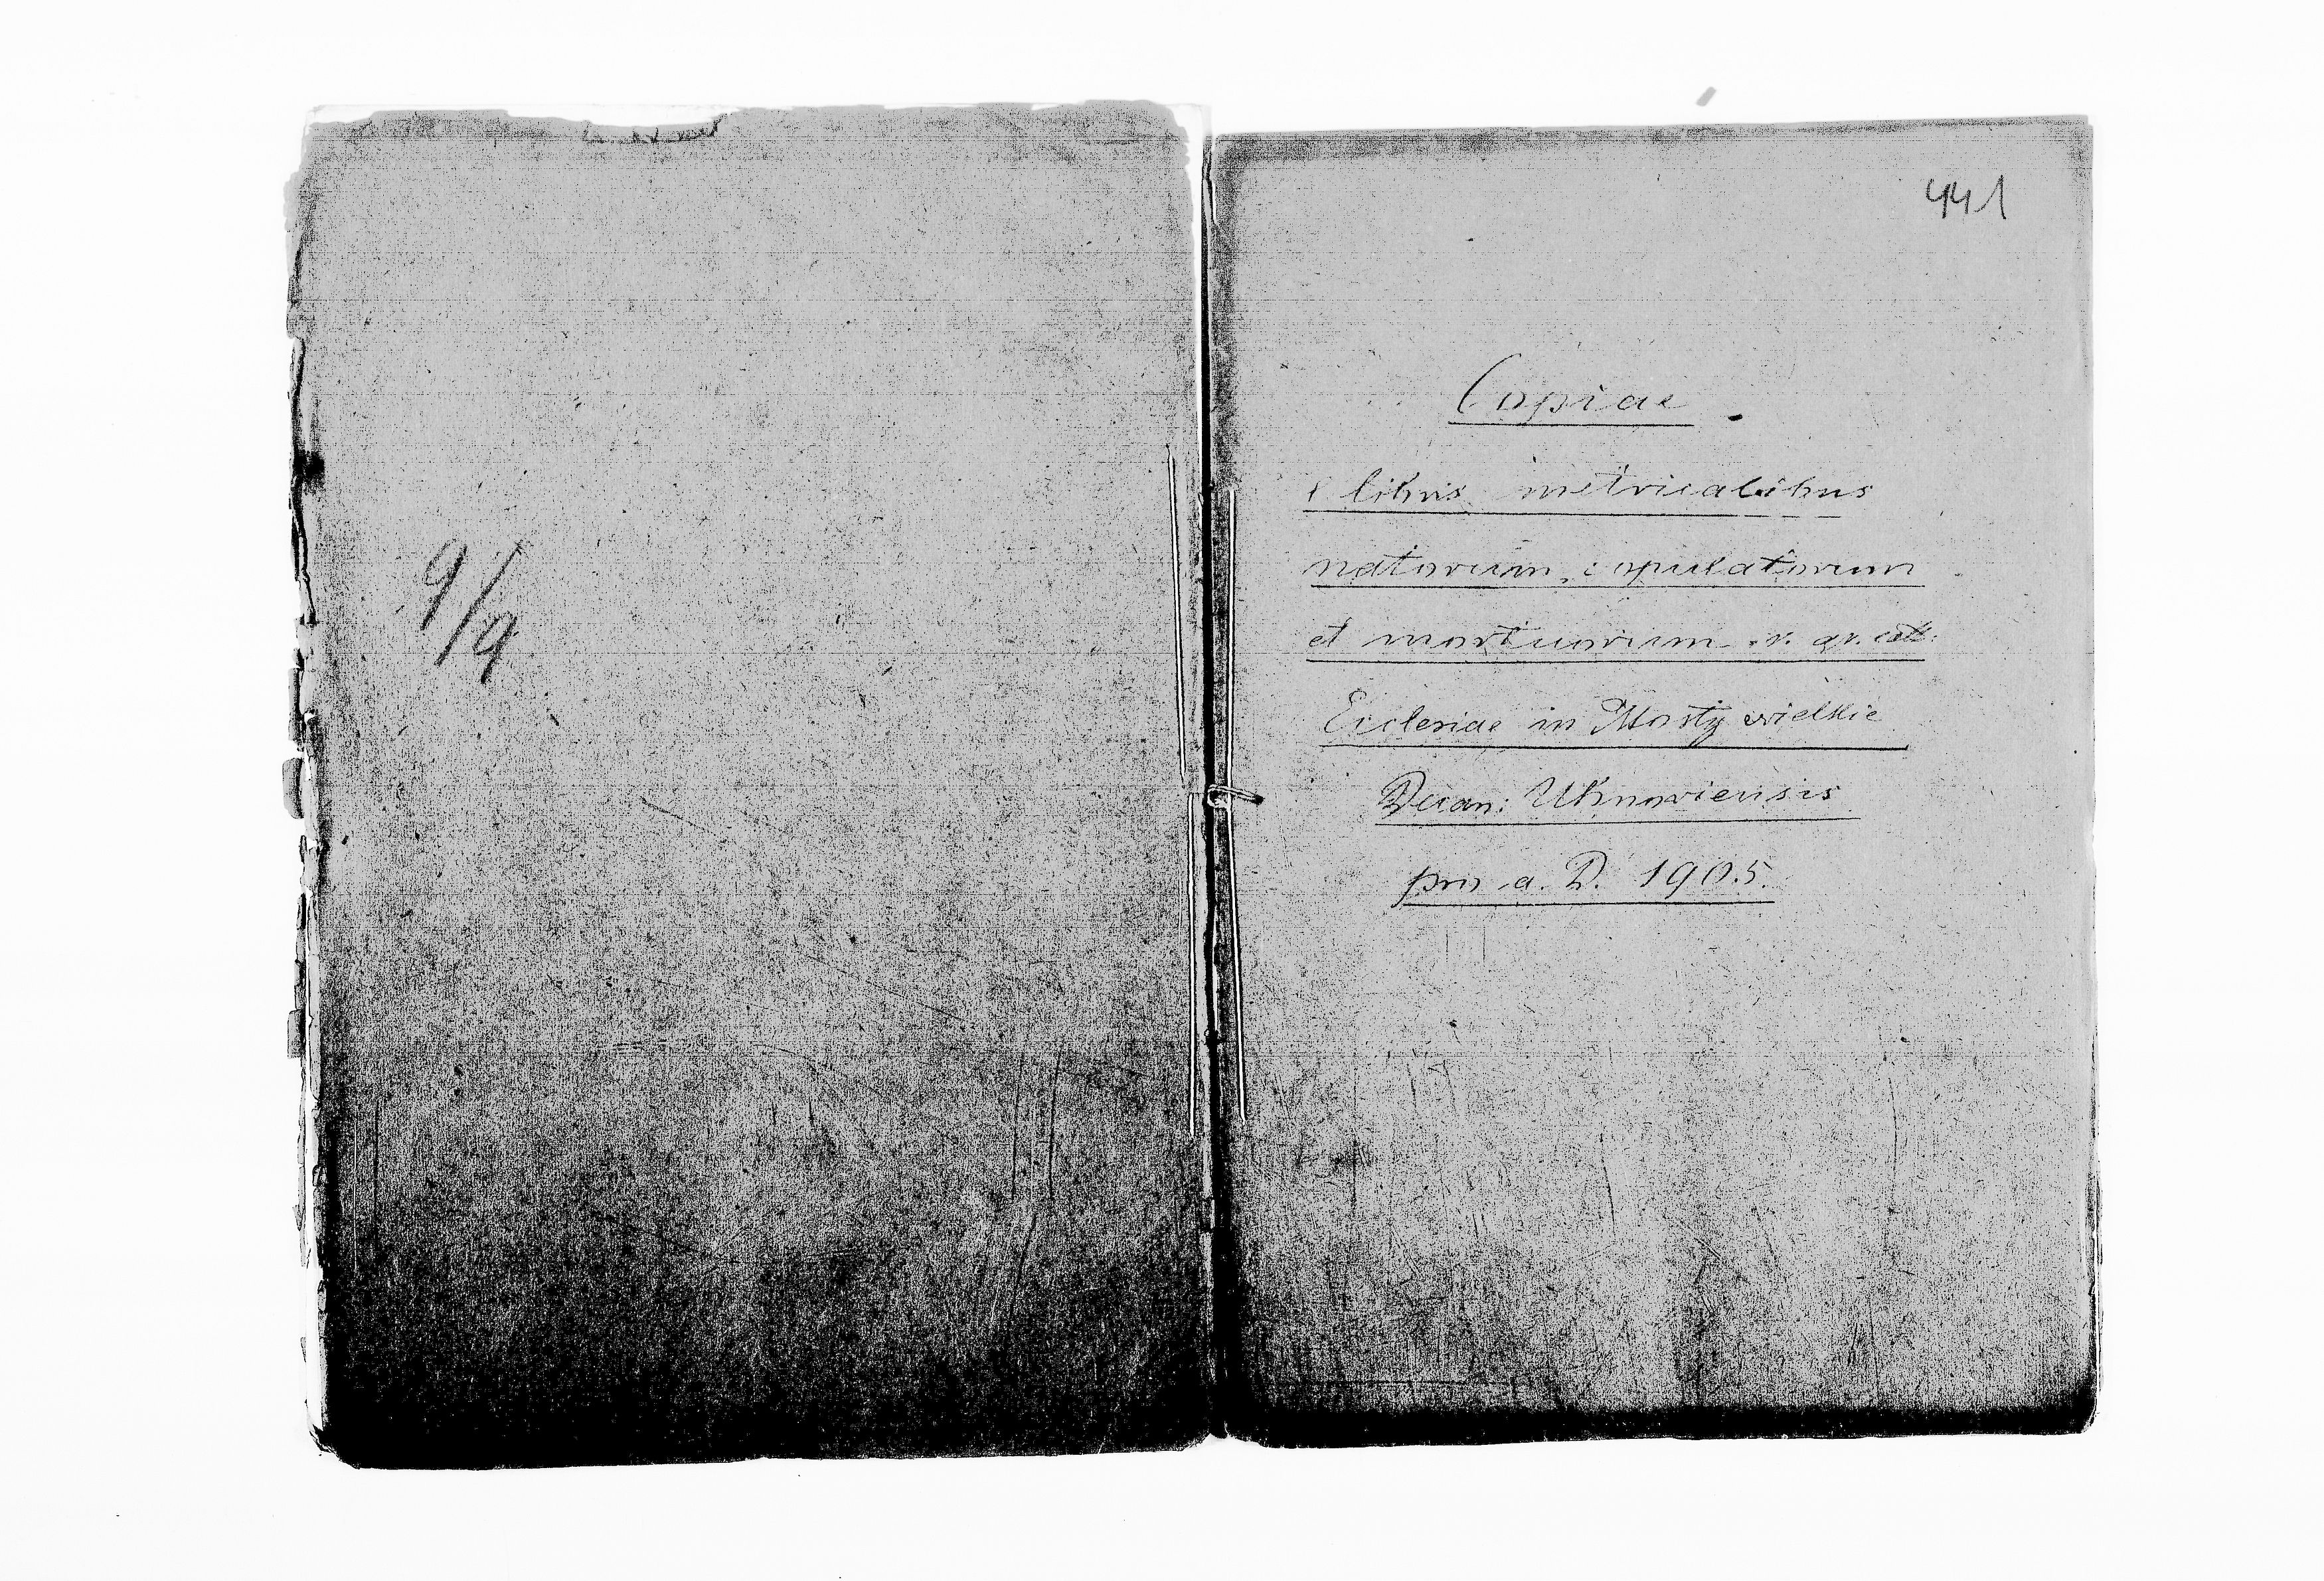 9/9
441
Copiae
e libris metricalibus
natorum, copulatorum
et mortuorum r. gr. cat.
Ecclesiae in Mosty wielkie
Decan: Uhnoviensis
pro a. D. 1905.